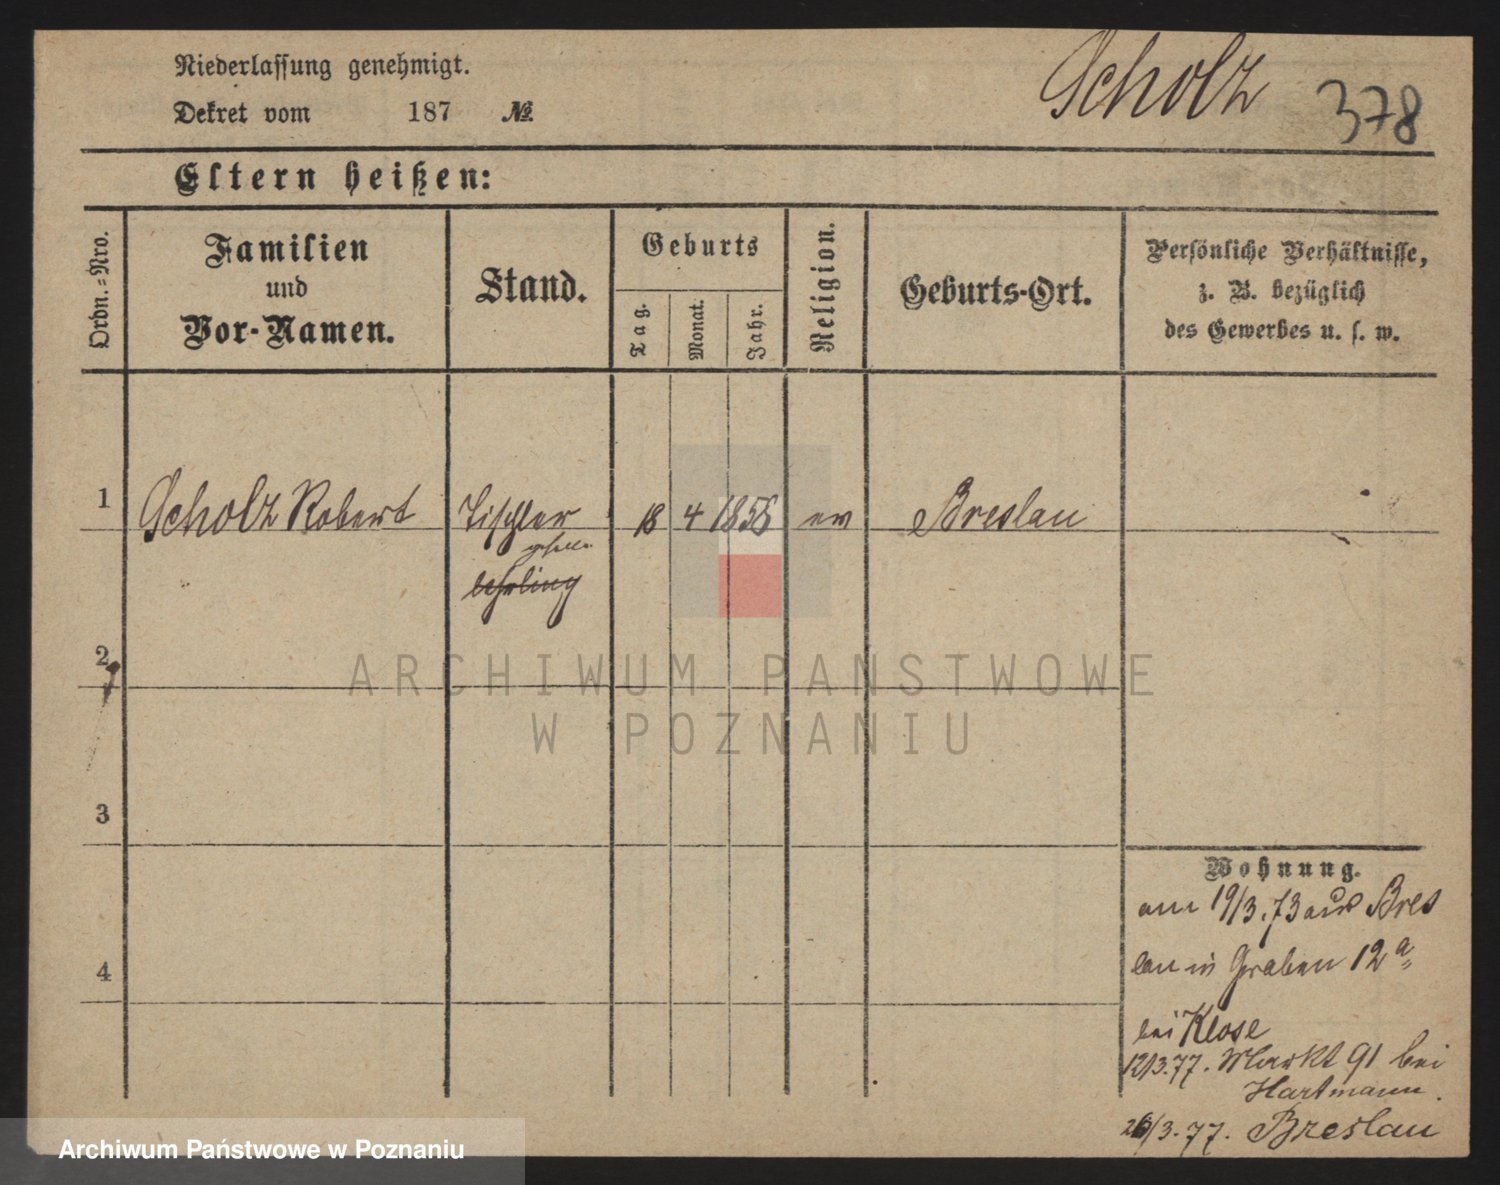 Niederlassung genehmigt.
Scholz
378
Dekret vom 187 №
Eltern heißen:
Ordn.-Nro.
Familien
und
Vor-Namen.
Stand.
Geburts
Tag.
Monat.
Jahr.
Religion.
Geburts-Ort.
Persönliche Verhältnisse,
z. B. bezüglich
des Gewerbes u. s. w.
1 Scholz Robert Tischler 18 4 1856 ev Breslau
lehrling
2
ARCHIWUM PAŃSTWOWE
W POZNANIU
3
Wohnung.
am 19/3.73 aus Bres
lau in Graben 12a
bei Klose
4
12/3.77. Markt 91 bei
Hartmann.
26/3.77. Breslau
Archiwum Państwowe w Poznaniu